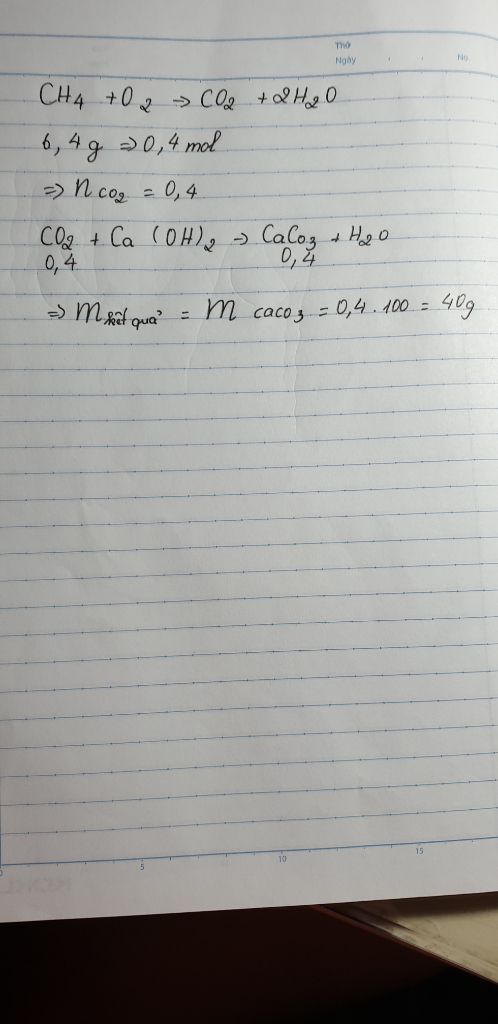 Thứ
Ngày . . No.
CH4 + O2 => CO2 + 2H2O
6,4g => 0,4 mol
=> n CO2 = 0,4
CO2 + Ca (OH)2 -> CaCo3 + H2O
0,4 0,4
=> m kết quả = m caco3 = 0,4 . 100 = 40g
0 5 10 15